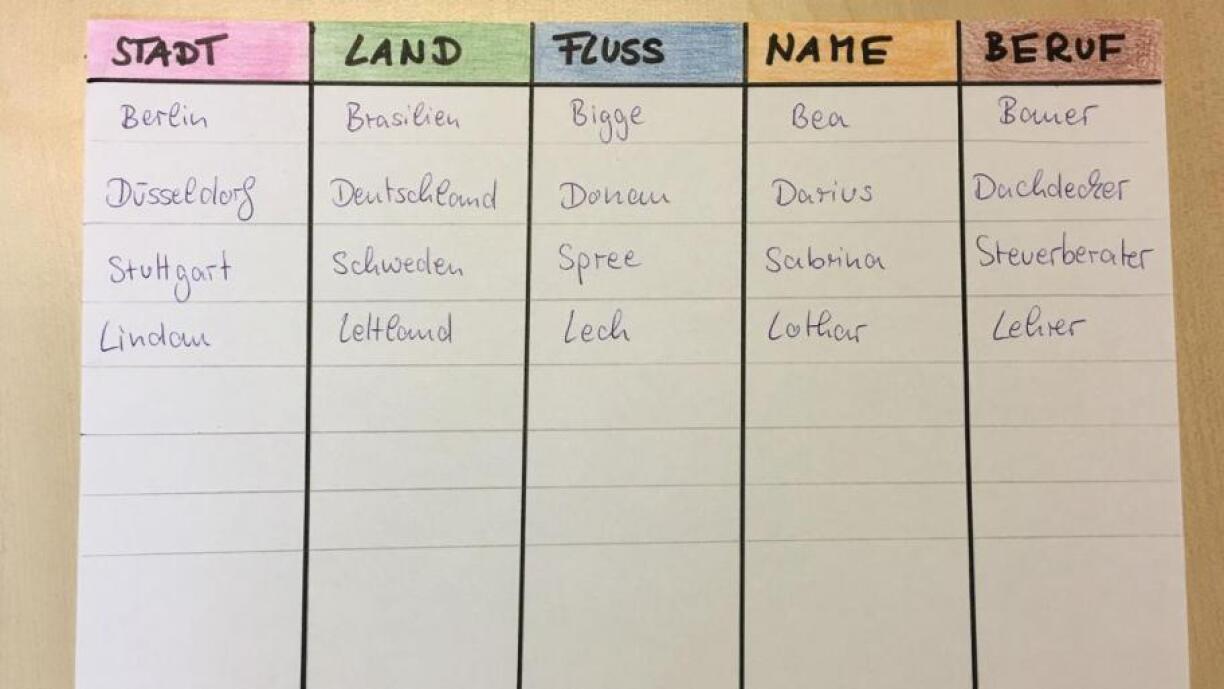 STADT LAND FLUSS NAME BERUF
Berlin Brasilien Bigge Bea Bauer
Düsseldorf Deutschland Donau Darius Dachdecker
Stuttgart Schweden Spree Sabrina Steuerberater
Lindau Lettland Lech Lothar Lehrer